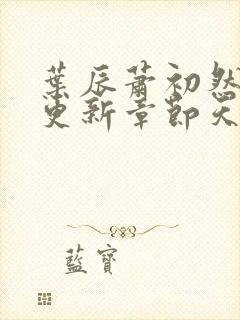 葉辰蕭初然
更新章節天
藍寶